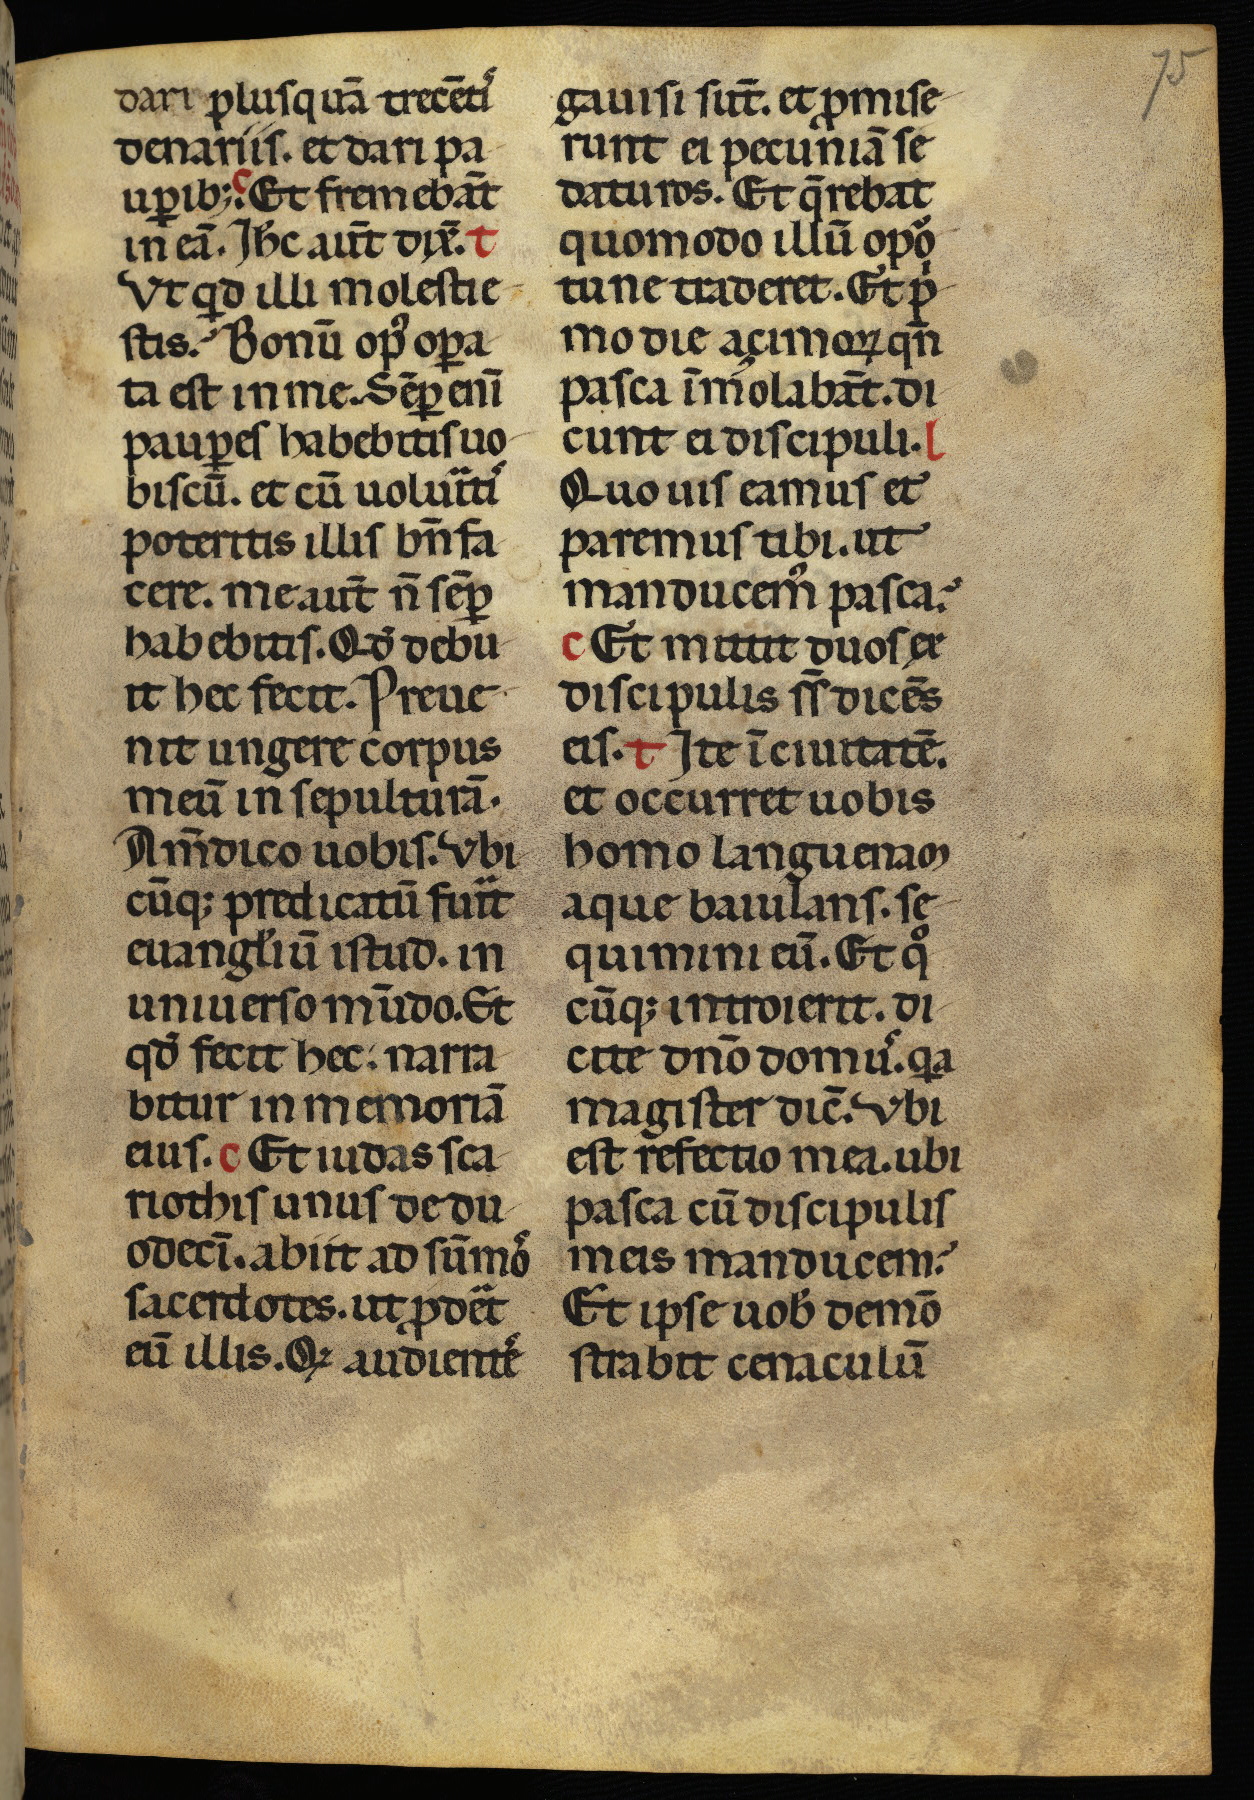 75
dari plusquā trecētis
denariis. et dari pa
uꝑib;. c Et fremebāt
in eā. Ihc aūt dix̄. t
Ut qͥd illi molesti e
stis? Bonū opꝰ oꝑa
ta est in me. Sēꝑ enī
pauꝑes habebitis uo
biscū. et cū uoluītis
poteritis illis bn̄ fa
cere. me aūt n̄ sēꝑ
habebitis. Qd̄ debu
it hec fecit. Preue
nit ungere corpus
meū in sepulturā.
Am̄ dico uobis. Ubi
cūq; predicatū fuīt
euangl̄iū istud. in
uniuerso mūdo. Et
qd̄ fecit hec: narra
bitur in memoriā
eius. c Et iudas sca
riothis unus de du
odecī. abiit ad sūmos
sacerdotes. ut ꝓdēt
eū illis. Qͥ audientes
gauisi sūt. et ꝓmise
runt ei pecuniā se
daturos. Et q̄rebat
quomodo illū opoꝰ
tune traderet. Et pͥ
mo die acimoꝝ qn̄
pasca īmolabāt. di
cunt ei discipuli. l
Quo uis eamus et
paremus tibi. ut
manducemꝰ pasca?
c Et mittit duos ex
discipulis ss̄ dicēs
eis. t Ite ī ciuitatē.
et occurret uobis
homo languenam
aque baiulans. se
quimini eū. Et qͦ
cūq; introierit. di
cite dn̄o domus. qͥa
magister dic̄. Ubi
est refectio mea. ubi
pasca cū discipulis
meis manducem?
Et ipse uob̄ demō
strabit cenaculū